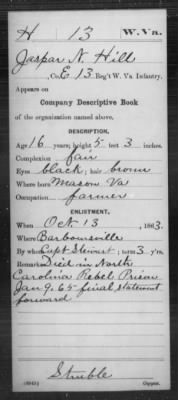 H 13 W. Va.
Jaspar N. Hill
, Co. E 13 Reg't W. Va. Infantry.
Appears on
Company Descriptive Book
of the organization named above.
DESCRIPTION.
Age 16 years; height 5 feet 3 inches.
Complexion fair
Eyes black; hair brown
Where born Mason Va
Occupation farmer
ENLISTMENT.
When Oct. 13, 1863.
Where Barboursville
By whom Capt Stewart; term 3 y'rs.
Remarks Died in North
Carolina Rebel Prison
Jan 9, 65 final statement
forward
Struble
Copyist.